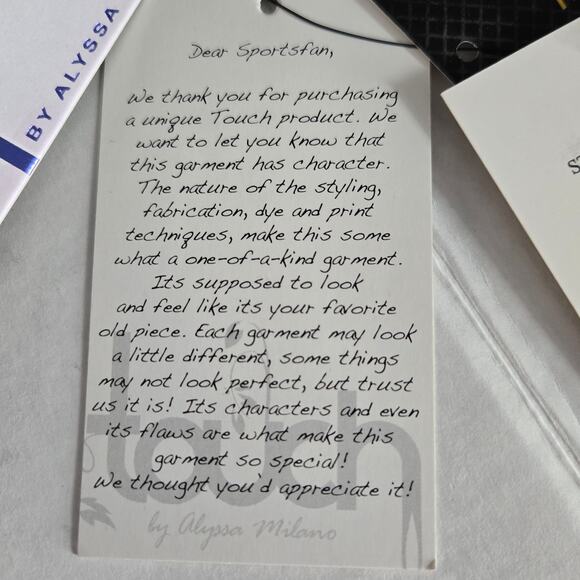 BY ALYSSA
Dear Sportsfan,
We thank you for purchasing
a unique Touch product. We
want to let you know that
this garment has character.
The nature of the styling,
fabrication, dye and print
techniques, make this some
what a one-of-a-kind garment.
Its supposed to look
and feel like its your favorite
old piece. Each garment may look
a little different, some things
may not look perfect, but trust
us it is! Its characters and even
its flaws are what make this
garment so special!
We thought you'd appreciate it!
touch
by Alyssa Milano